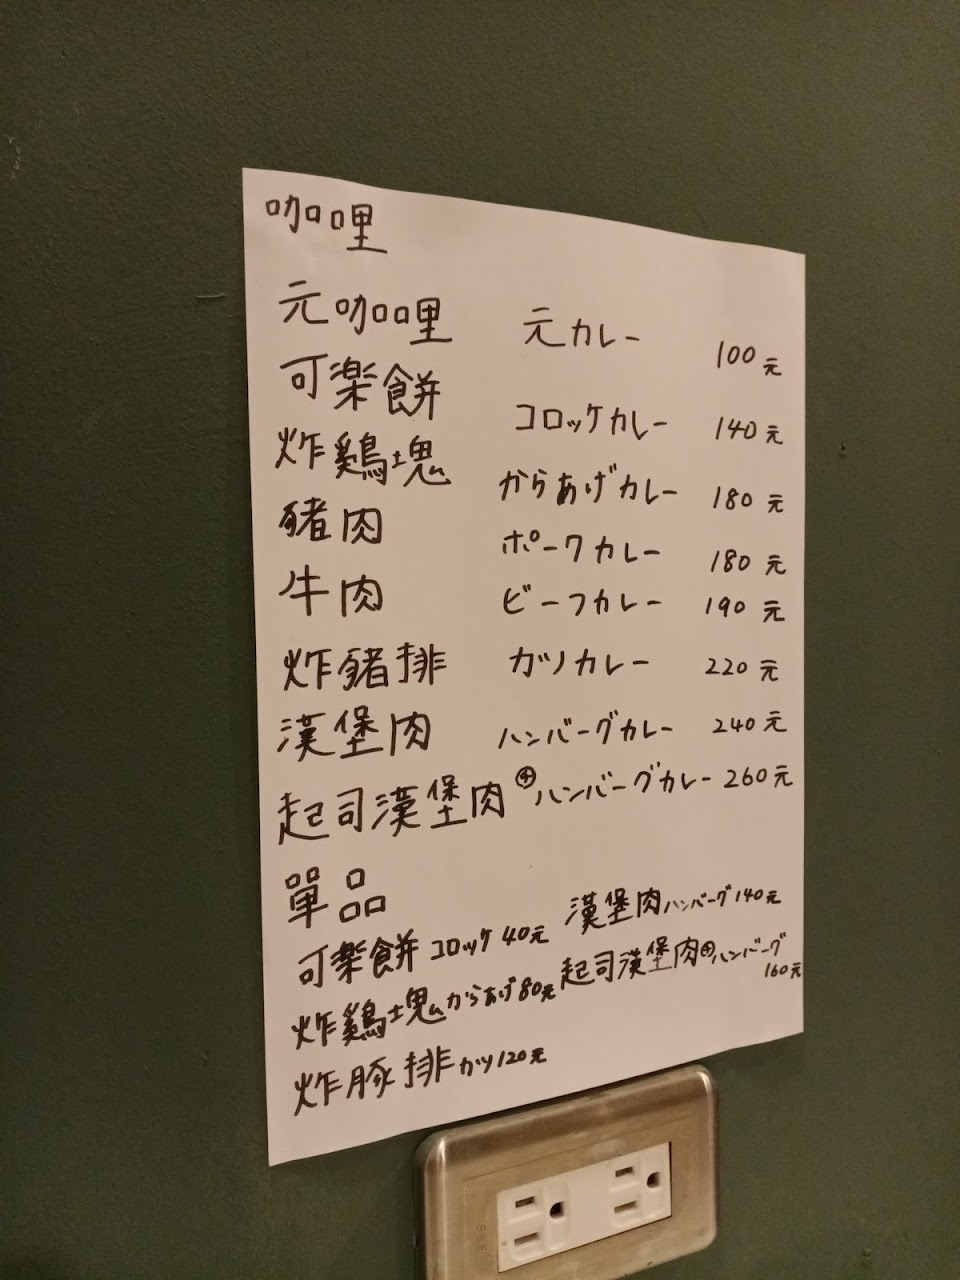 咖哩
元咖哩 元カレー 100元
可楽餅 コロッケカレー 140元
炸鶏塊 からあげカレー 180元
豬肉 ポークカレー 180元
牛肉 ビーフカレー 190元
炸豬排 カツカレー 220元
漢堡肉 ハンバーグカレー 240元
起司漢堡肉 ㋠ハンバーグカレー 260元
單品
可樂餅 コロッケ 40元 漢堡肉 ハンバーグ 140元
炸鶏塊 からあげ 80元 起司漢堡肉 ㋠ハンバーグ 160元
炸豚排 カツ 120元